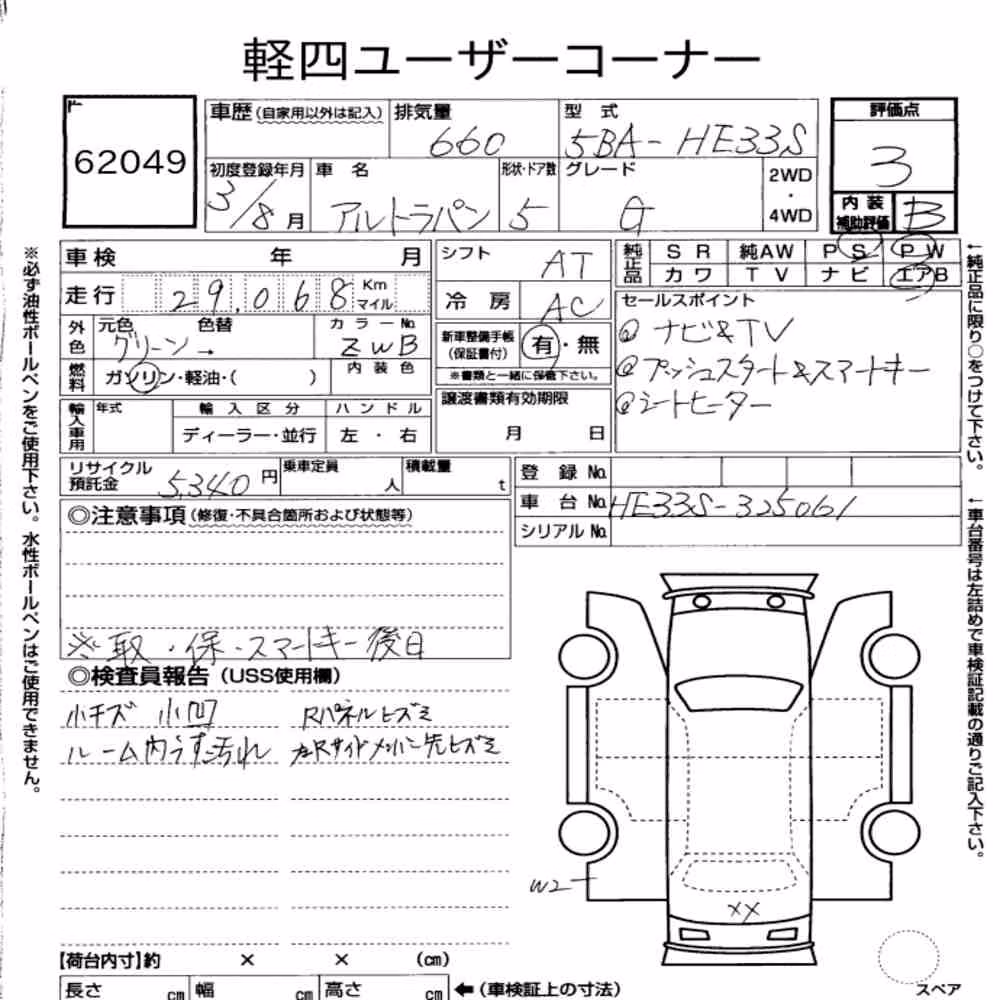 軽四ユーザーコーナー
62049
車歴(自家用以外は記入) 排気量 660 型式 5BA-HE33S
評価点 3
初度登録年月 3/8月 車名 アルトラパン 形状・ドア数 5 グレード G 2WD・4WD
内装補助評価 B
車検 年 月
走行 29,068 Km マイル
外色 元色 グリーン → 色替 カラーNo. ZWB
燃料 ガソリン・軽油・( ) 内装色
輸入車用 年式 輸入区分 ディーラー・並行 ハンドル 左・右
シフト AT
冷房 AC
新車整備手帳(保証書付) 有・無
※書類と一緒に保管下さい。
譲渡書類有効期限
月 日
純正品 SR 純AW PS PW
カワ TV ナビ エアB
セールスポイント
◎ナビ&TV
◎プッシュスタート&スマートキー
◎シートヒーター
リサイクル預託金 5,340円 乗車定員 人 積載量 t
登録No.
車台No. HE33S-325061
シリアルNo.
◎注意事項(修復・不具合箇所および状態等)
※取・保・スマートキー後日
◎検査員報告(USS使用欄)
小キズ 小凹 Rパネルヒズミ
ルーム内うす汚れ 左Rサイドメンバー先ヒズミ
W2
XX
【荷台内寸】約 × × (cm)
長さ cm 幅 cm 高さ cm ←(車検証上の寸法)
スペア
※必ず油性ボールペンをご使用下さい。水性ボールペンはご使用できません。
←純正品に限り○をつけて下さい。
←車台番号は左詰めで車検証記載の通りご記入下さい。